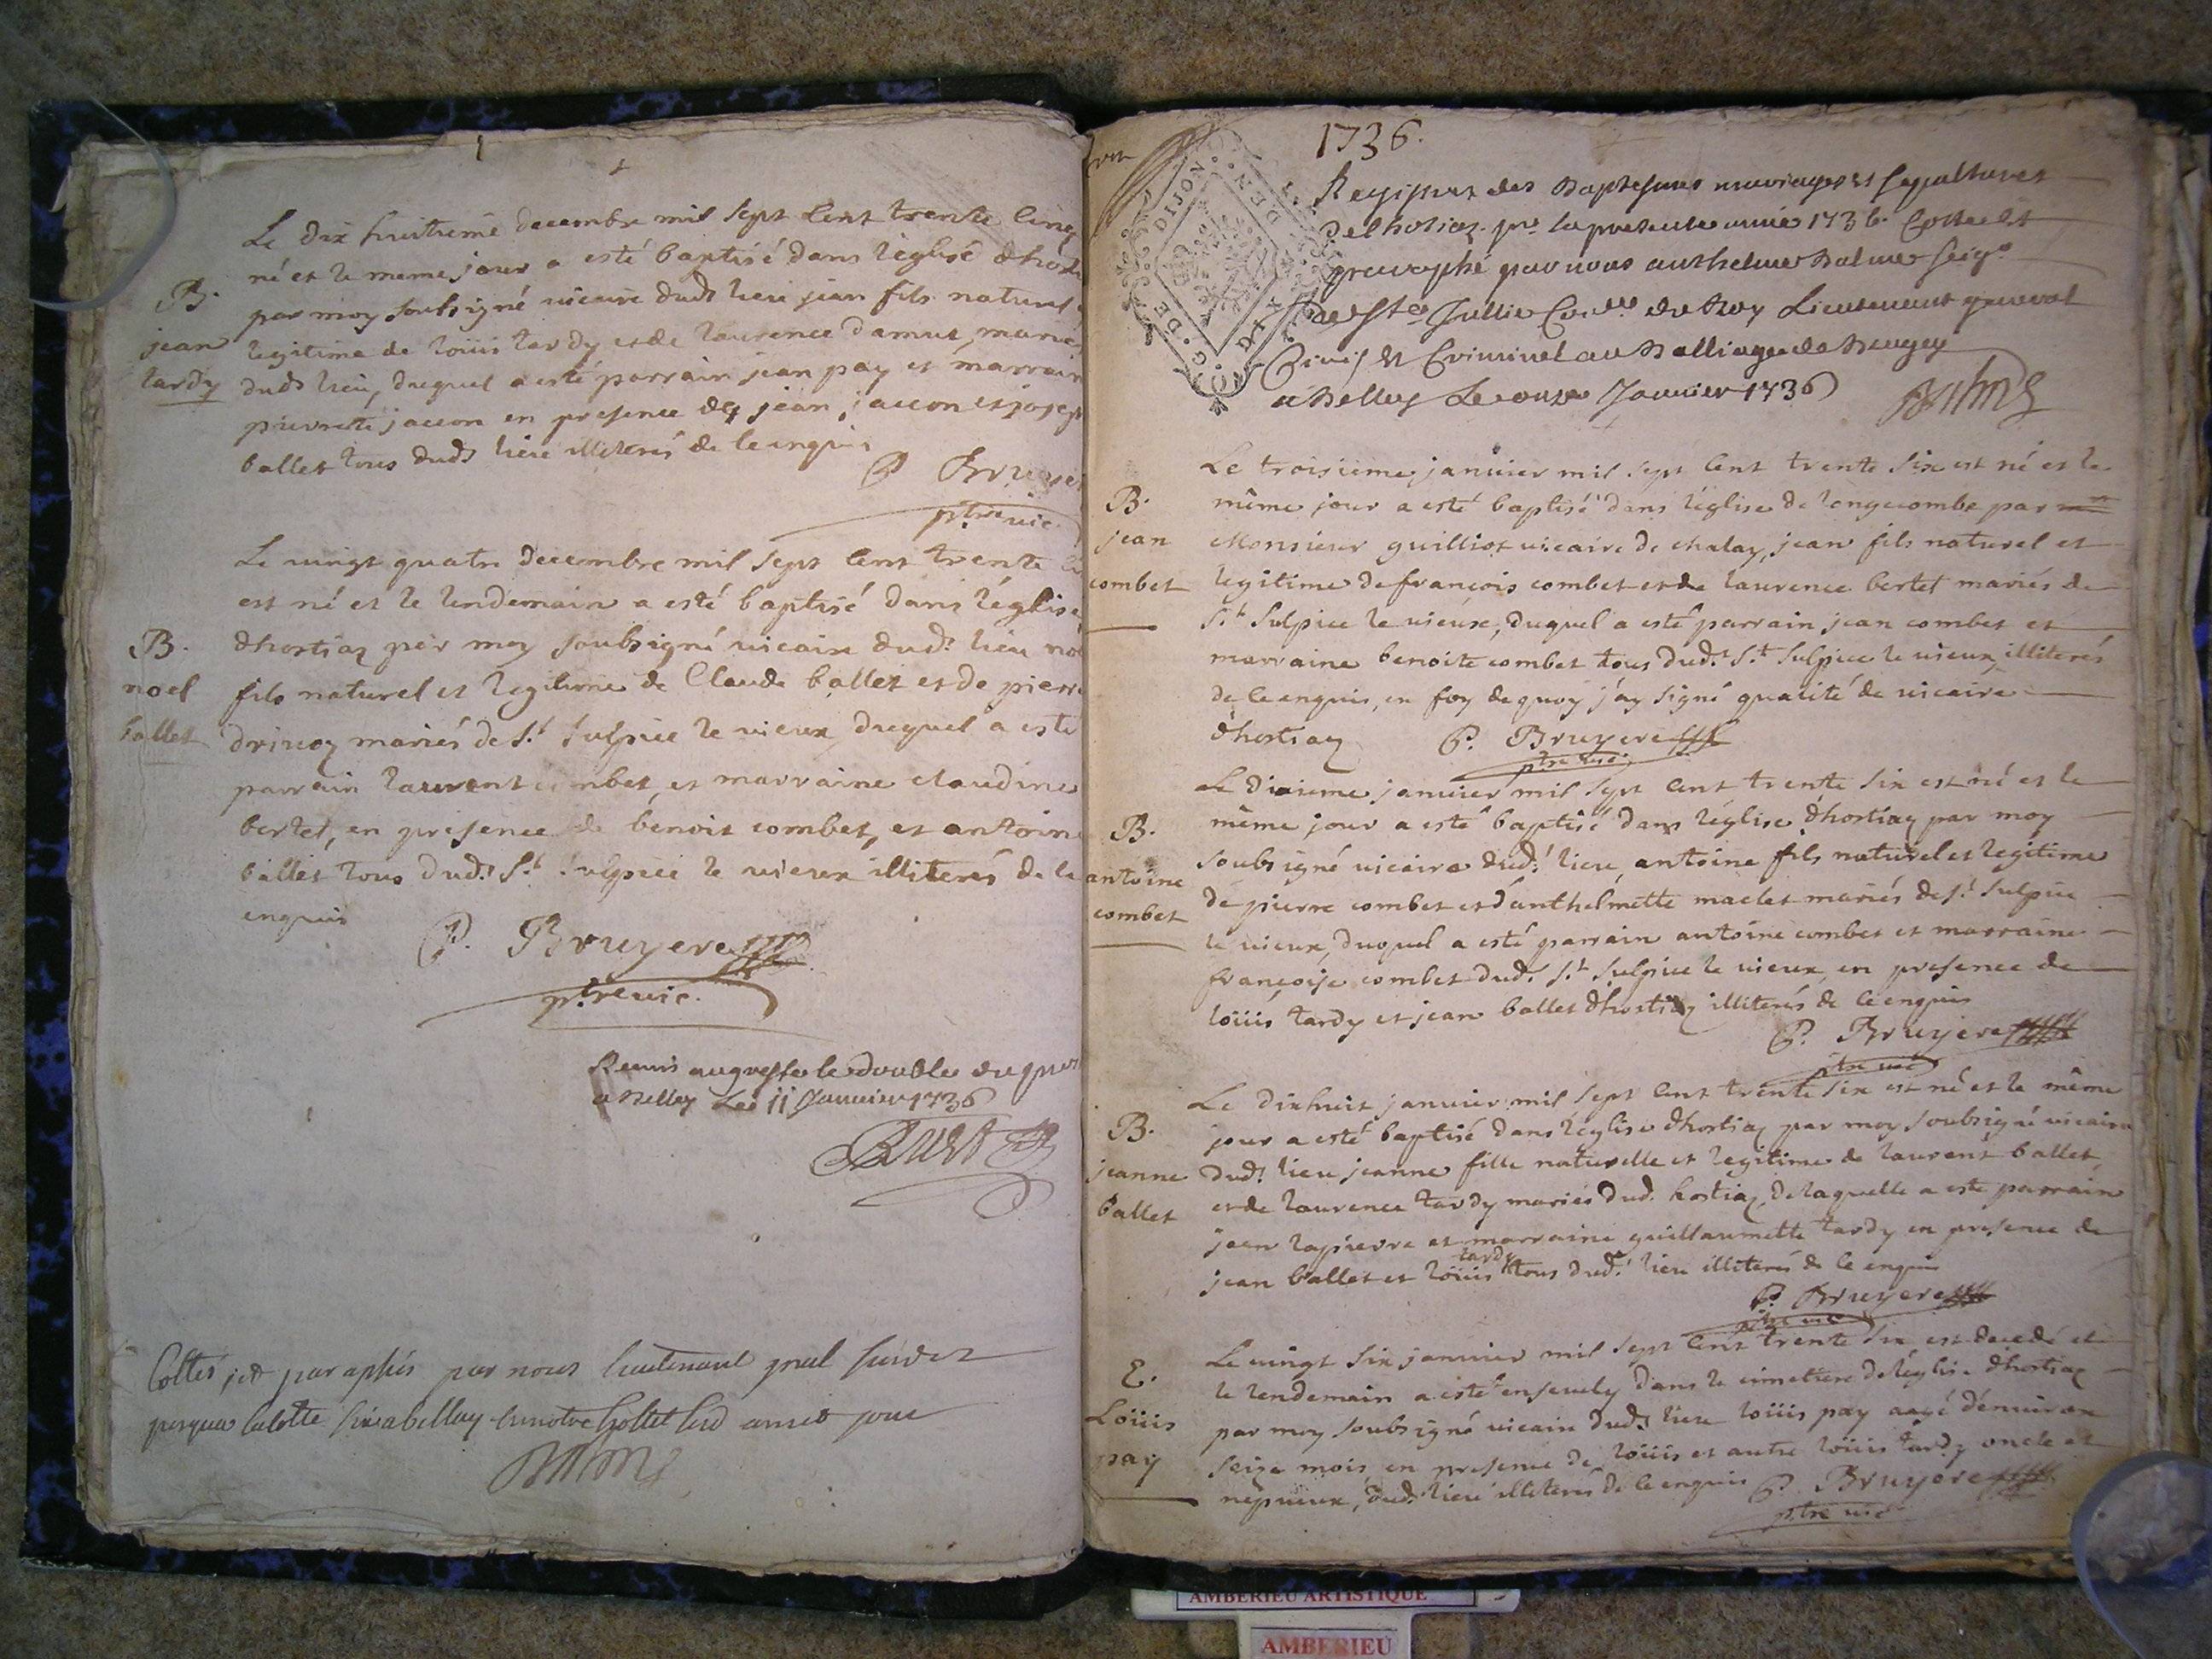 Le dix huitieme decembre mil sept Cent trente Cinq
né et le meme jour a esté baptisé dans l'eglise dhosti
B.
par moy soubsigné vicaire dud. lieu jean fils naturel
jean
legitime de loüis tardy et de laurence damur, marié
tardy
dud. lieu, duquel a esté parrain jean pay et marrain
pierrette jaccon en presence de jean jaccon et joseph
ballet tous dud. lieu illiterés de ce enquis
P Bruyer
ptre vic.
Le vingt quatre decembre mil sept Cent trente
est né et le lendemain a esté baptisé dans l'églis
B.
dhostiaz par moy soubsigné vicaire dud. lieu noe
noel
fils naturel et legitime de Claude ballet et de pierr
ballet
mariés de S.t Sulpice le vieux, duquel a esté
parrain laurent combet, et marraine claudine
bertet, en presence de benoit combet, et antoin
ballet tous dud. S.t Sulpice le vieux illiterés de ce
enquis
P. Bruyere
ptre vic.
Remis au greffe le double du pres
a Belley Le 11 Janvier 1736
Cottés et paraphés par nous lieutenant gnal
jusqua la cotte six a belley en notre hostel
1736.
DIJON
G. DE
Registre des Baptesmes mariages et sepultures
delhotiaz pr la presente année 1736. Cotté et
paraphé par nous anthelme Balme seigr
de Ste Jullie Coner du Roy Lieutenant general
Civil et Criminel au Balliage de Beugey
a Belley Le onze Janvier 1736
Le troisieme janvier mil sept Cent trente six est né et le
B.
même jour a esté baptisé dans l'église de longecombe par
jean
Monsieur guilliot vicaire de chalay, jean fils naturel et
combet
legitime de françois combet et de laurence bertet mariés de
S.t Sulpice le vieux, duquel a esté parrain jean combet et
marraine benoite combet tous dud. S.t Sulpice le vieux illiterés
de ce enquis, en foy de quoy j'ay signé qualité de vicaire
dhostiaz P. Bruyere
ptre vic.
Le dixieme janvier mil sept Cent trente six est né et le
B.
même jour a esté baptisé dans l'église dhostiaz par moy
antoine
soubsigné vicaire dud. lieu, antoine fils naturel et legitime
combet
de pierre combet et d'anthelmette maclet mariés de S.t Sulpice
le vieux, duquel a esté parrain antoine combet et marraine
françoise combet dud. S.t Sulpice le vieux en presence de
loüis tardy et jean ballet dhostiaz illiterés de ce enquis
P. Bruyere
ptre vic
Le dixhuit janvier mil sept Cent trente six est né et le même
B.
jour a esté baptisé dans l'église dhostiaz par moy soubsigné vicaire
jeanne
dud. lieu jeanne fille naturelle et legitime de laurent ballet
ballet
et de laurence tardy mariés dud. hostiaz, de laquelle a esté parrain
jean lapierre et marraine guillaumette tardy en presence de
jean ballet et loüis tardy tous dud. lieu illiterés de ce enquis
P. Bruyere
ptre vic
Le vingt six janvier mil sept Cent trente six est decedé et
E.
le lendemain a esté ensevely dans le cimetiere de l'eglise dhostiaz
Loüis
par moy soubsigné vicaire dud. lieu loüis pay aagé d'environ
pay
seize mois, en presence de loüis et autre loüis tardy oncle et
nepveux, dud. lieu illiterés de ce enquis P. Bruyere
ptre vic
AMBERIEU ARTISTIQUE
AMBERIEU